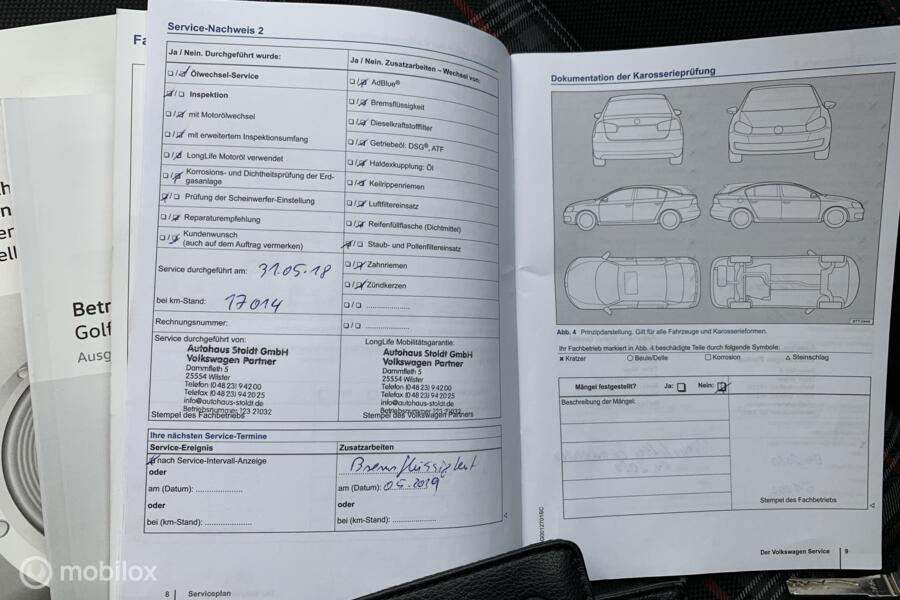 Service-Nachweis 2
Ja / Nein. Durchgeführt wurde:
Ölwechsel-Service
Inspektion
mit Motorölwechsel
mit erweitertem Inspektionsumfang
LongLife Motoröl verwendet
Korrosions- und Dichtheitsprüfung der Erd-
gasanlage
Prüfung der Scheinwerfer-Einstellung
Reparaturempfehlung
Kundenwunsch
(auch auf dem Auftrag vermerken)
Service durchgeführt am: 31.05.18
bei km-Stand: 17014
Rechnungsnummer:
Service durchgeführt von:
Autohaus Stoldt GmbH
Volkswagen Partner
Dammfleth 5
25554 Wilster
Telefon (04823) 94200
Telefax (04823) 942025
info@autohaus-stoldt.de
Betriebsnummer 123 21032
Stempel des Fachbetriebs
Ja / Nein. Zusatzarbeiten – Wechsel von:
AdBlue®
Bremsflüssigkeit
Dieselkraftstofffilter
Getriebeöl: DSG®, ATF
Haldexkupplung: Öl
Keilrippenriemen
Luftfiltereinsatz
Reifenfüllflasche (Dichtmittel)
Staub- und Pollenfiltereinsatz
Zahnriemen
Zündkerzen
LongLife Mobilitätsgarantie:
Autohaus Stoldt GmbH
Volkswagen Partner
Dammfleth 5
25554 Wilster
Telefon (04823) 94200
Telefax (04823) 942025
info@autohaus-stoldt.de
Betriebsnummer 123 21032
Stempel des Volkswagen Partners
Ihre nächsten Service-Termine
Service-Ereignis
nach Service-Intervall-Anzeige
oder
am (Datum): ....................
oder
bei (km-Stand): ....................
Zusatzarbeiten
Bremsflüssigkeit
am (Datum): 05.2019
oder
bei (km-Stand): ...................
8 Serviceplan
Dokumentation der Karosserieprüfung
Abb. 4 Prinzipdarstellung. Gilt für alle Fahrzeuge und Karosserieformen.
Ihr Fachbetrieb markiert in Abb. 4 beschädigte Teile durch folgende Symbole:
x Kratzer ○ Beule/Delle □ Korrosion △ Steinschlag
Mängel festgestellt? Ja: Nein:
Beschreibung der Mängel:
Stempel des Fachbetriebs
Der Volkswagen Service 9
Fa
Betr
Golf
Ausg
mobilox